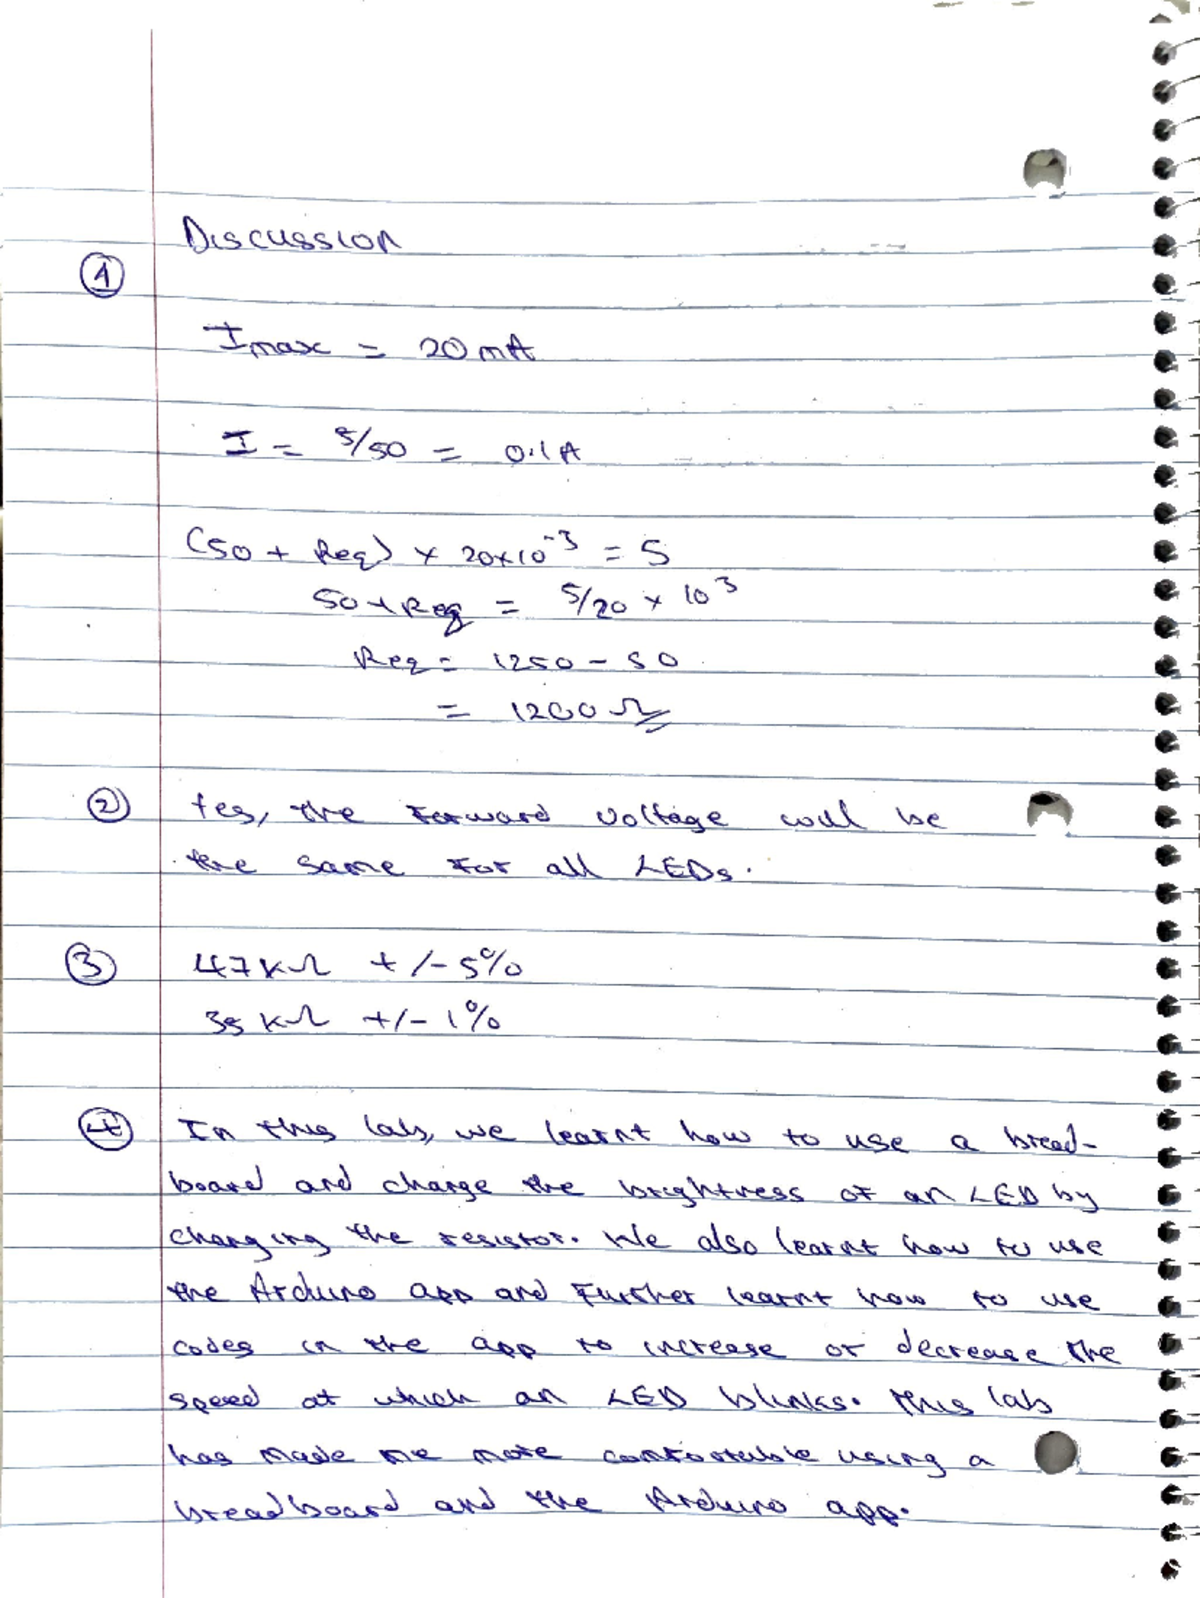 Discussion
①
Imax = 20 mA
I = 5/50 = 0.1A
(50 + Req) × 20×10⁻³ = 5
50+Req = 5/20 × 10³
Req = 1250 - 50
= 1200 Ω
② Yes, the forward voltage will be
the same for all LEDs.
③ 47 kΩ +/- 5%
kΩ +/- 1%
④ In this lab, we learnt how to use a bread-
board and change the brightness of an LED by
changing the resistor. We also learnt how to use
the Arduino app and further learnt how to use
codes in the app to increase or decrease the
speed at which an LED blinks. This lab
has made me more comfortable using a
breadboard and the Arduino app.